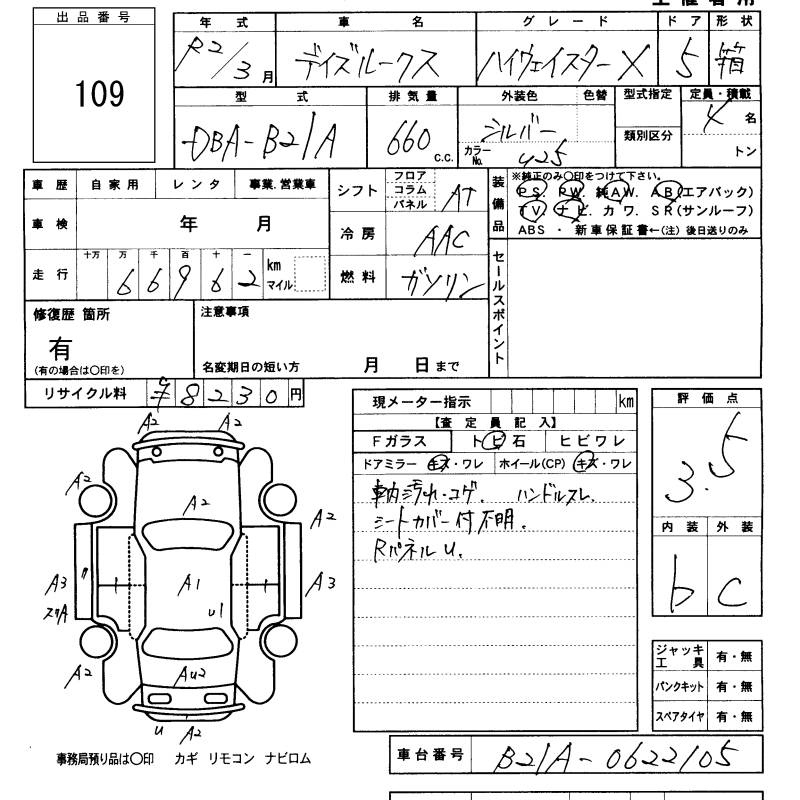 出品番号
109
年式 車名 グレード ドア 形状
R2/3月 デイズルークス ハイウェイスターX 5 箱
型式 排気量 外装色 色替 型式指定 定員・積載
DBA-B21A 660 c.c. シルバー 4名
カラーNo. U25 類別区分 トン
車歴 自家用 レンタ 事業.営業車
車検 年 月
走行 十万 万 千 百 十 一 km マイル
66962
シフト フロア コラム パネル AT
冷房 AAC
燃料 ガソリン
装備品
※純正のみ〇印をつけて下さい。
PS. PW. 純AW. AB(エアバック)
TV. ナビ. カワ. SR(サンルーフ)
ABS ・ 新車保証書←(注) 後日送りのみ
セールスポイント
修復歴 箇所
有
(有の場合は〇印を)
注意事項
名変期日の短い方 月 日まで
リサイクル料 8230円
現メーター指示 km
【査定員記入】
Fガラス トビ石 ヒビワレ
ドアミラー キズ・ワレ ホイール(CP) キズ・ワレ
車内汚れ・コゲ. ハンドルスレ.
シートカバー付不明.
RパネルU.
評価点
3.5
内装 外装
b c
ジャッキ工具 有・無
パンクキット 有・無
スペアタイヤ 有・無
A2 A2
A2 A2 A2
A3 A1 A3
U1
A2 AU2 A2
U A2
事務局預り品は〇印 カギ リモコン ナビロム
車台番号 B21A-0622105